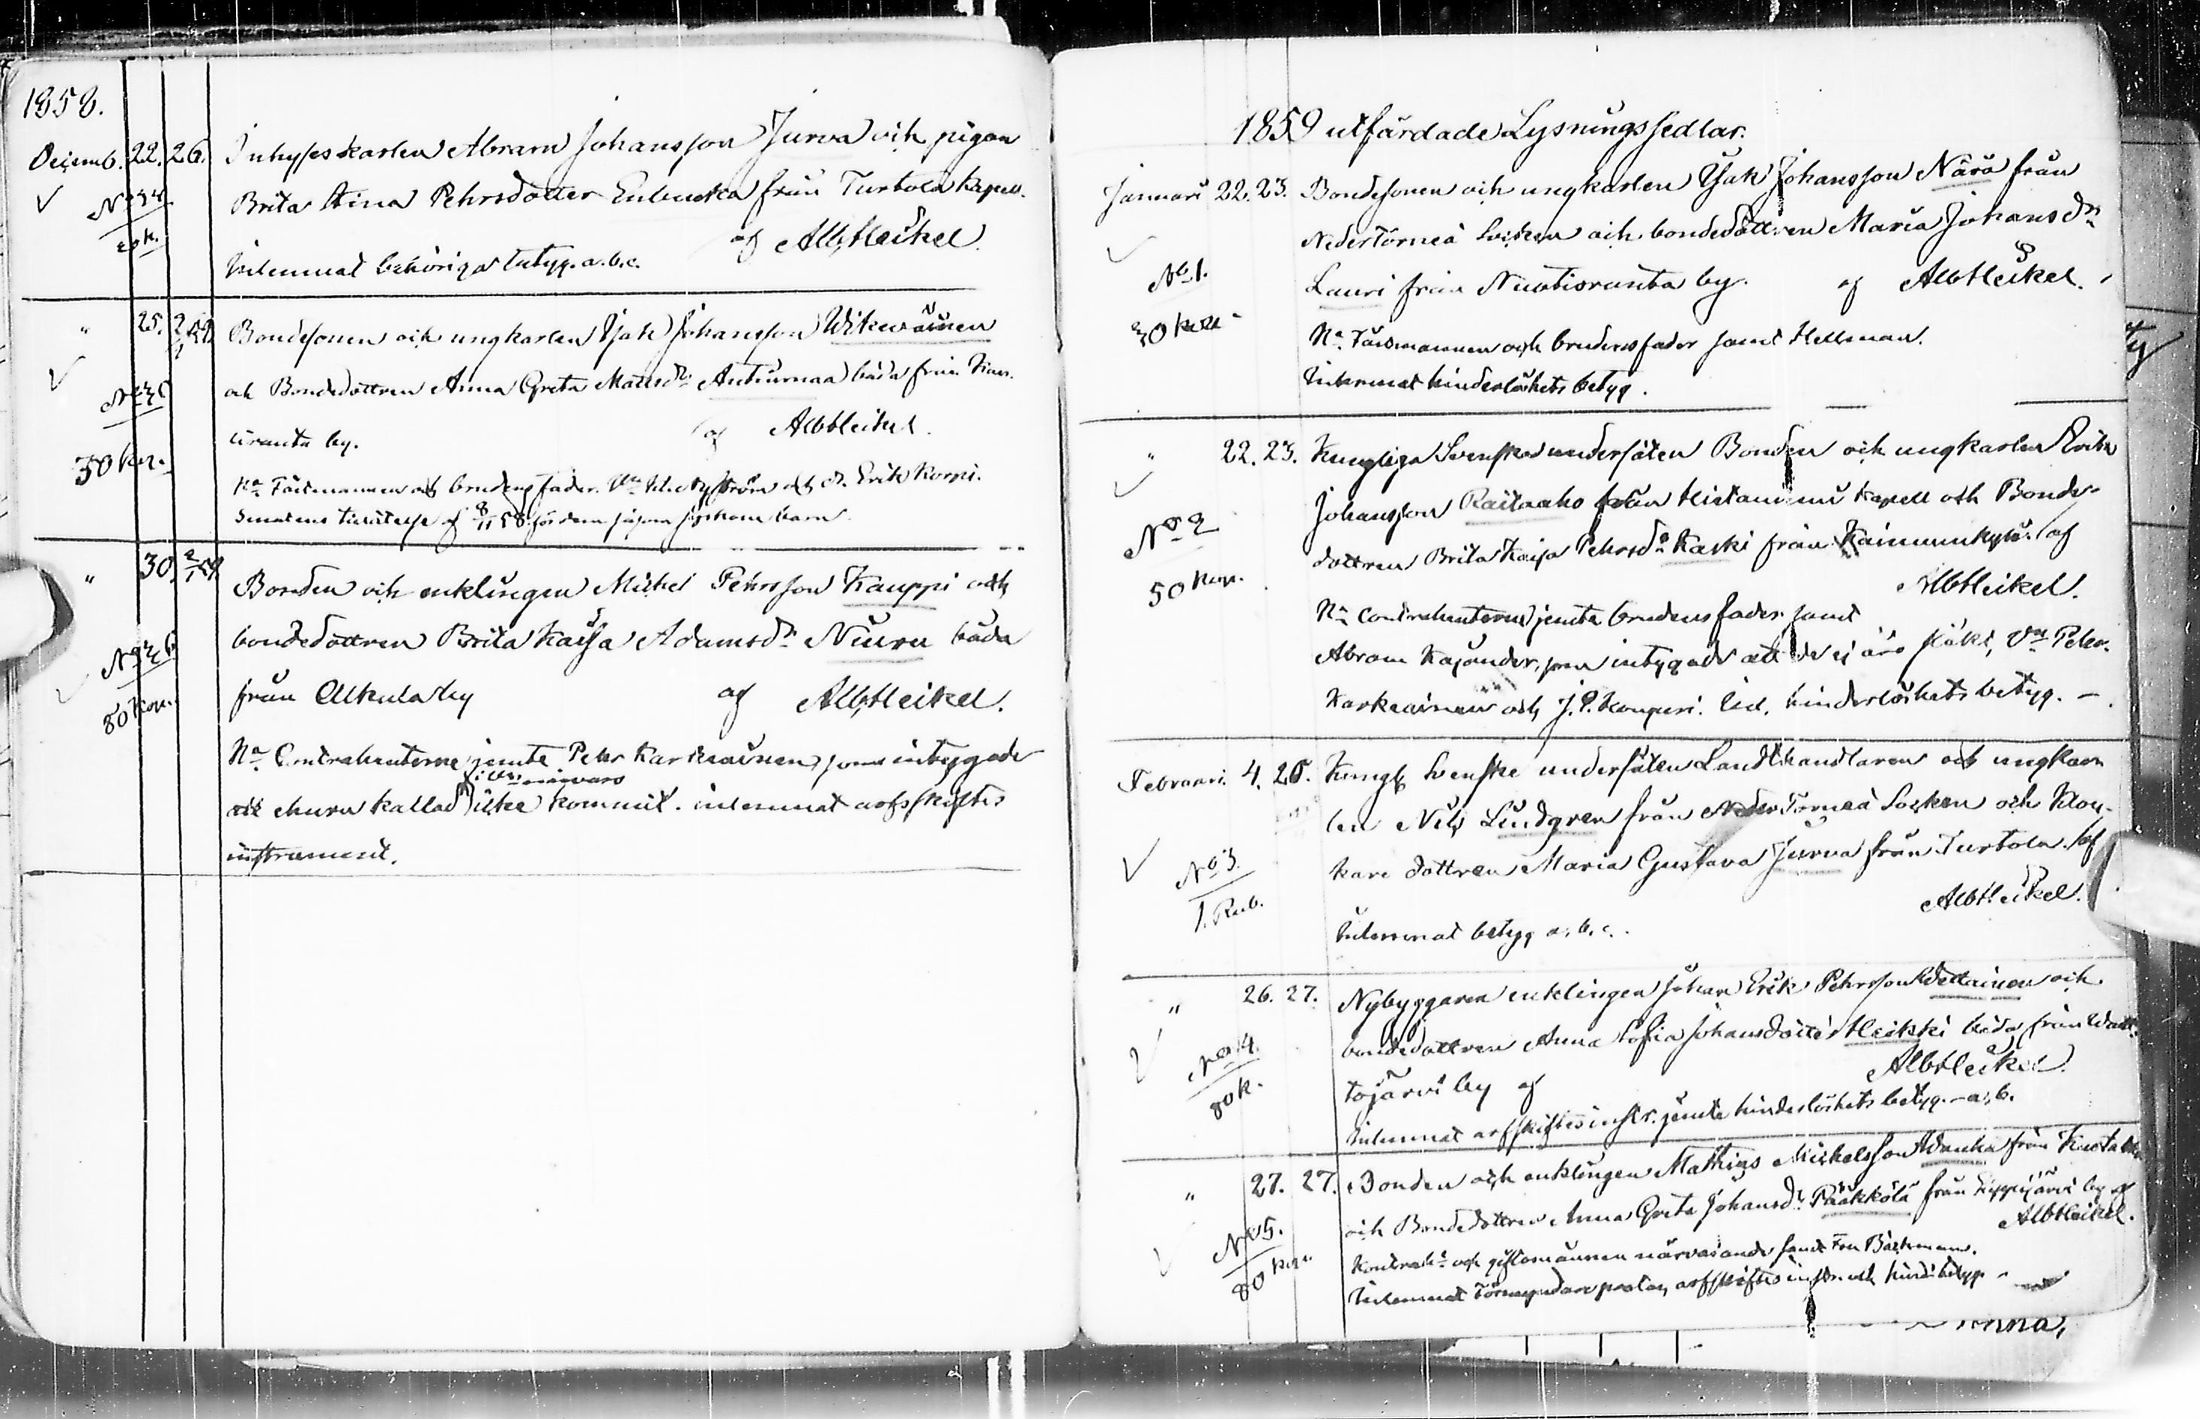 1858.
Decemb. 22. 26. Inhyseskarlen Abram Johansson Jurva och pigan
No 34 Brita Stina Pehrsdotter från Turtola Kapell.
af Alb Heikel
Inlemnat behöriga betyg. a. b. c.
" 25. 2/1 59 Bondesonen och ungkarlen Isak Johansson Wikewäinen
och Bondedottren Anna Greta Mattsdr Anturnaa båda från
uranta by. af Alb Heikel.
30 kop.
Nä Förlmannen och brudens fader. Vn och d. Erik Korpi.
Senatens tillåtelse af 8/11 58
" 30. 2/1 59
Bonden och enklingen Michel Pehrsson Kauppi och
bondedottren Brita Kajsa Adamsdr Niuru båda
No 36
från Alkula by af Alb Heikel.
80 kop.
Nä Contrahenterne jemte Pehr Karkiainen som intygade
att churu kallad icke kommit. inlemnat arfskiftes
instrument.
1859 utfärdade Lysningssedlar.
Januari 22. 23. Bondesonen och ungkarlen Isak Johansson Närä från
Nedertorneå Socken och bondedottren Maria Johansdr
No 1. Lauri från Nuotioranta by. af Alb Heikel.
30 kop.
Nä Förlmannen och brudens fader samt Hellman.
Inlemnat hinderlöshets betyg.
" 22. 23. Kungliga Svenska undersåten Bonden och ungkarlen Erik
Johansson Raitaaho från Hietaniemi Kapell och Bonde-
No 2
dottren Brita Kajsa Pehrsdr Kaski från Kainuunkylä. af
50 kop. Alb Heikel.
Nä Contrahenterne jemte brudens fader samt
Abram Kajander, som intygade att de ej äro släkt, Vn Peter
Karkiainen och J. P. Konguri. hinderlöshets betyg. –
Februari. 4. 20. Kungl Svenske undersåten Landthandlaren och ungkar-
len Nils Lindgren från Neder Torneå Socken och Kloc-
No 3. kare dottren Maria Gustava Jurva från Turtola. af
1. Rub. Alb Heikel.
Inlemnat betyg a. b. c.
" 26. 27. Nybyggaren enklingen Johan Erik Pehrsson Wettainen och
No 4. bondedottren Anna Sofia Johansdotter Heikki båda från
80 k. tojärvi by af Alb Heikel
Inlemnat arfskiftesinstr. jemte hinderlöshets betyg. – a. b.
" 27. 27. Bonden och enklingen Mathias Michelsson Wanha från
No 5. och Bondedottren Anna Greta Johansdr Pääkkölä från by af
Alb Heikel.
80 kop. Kontrahr och giftomannen närvarande samt Fru Bäckman.
Inlemnat arfskiftes instr. och hind. betyg –